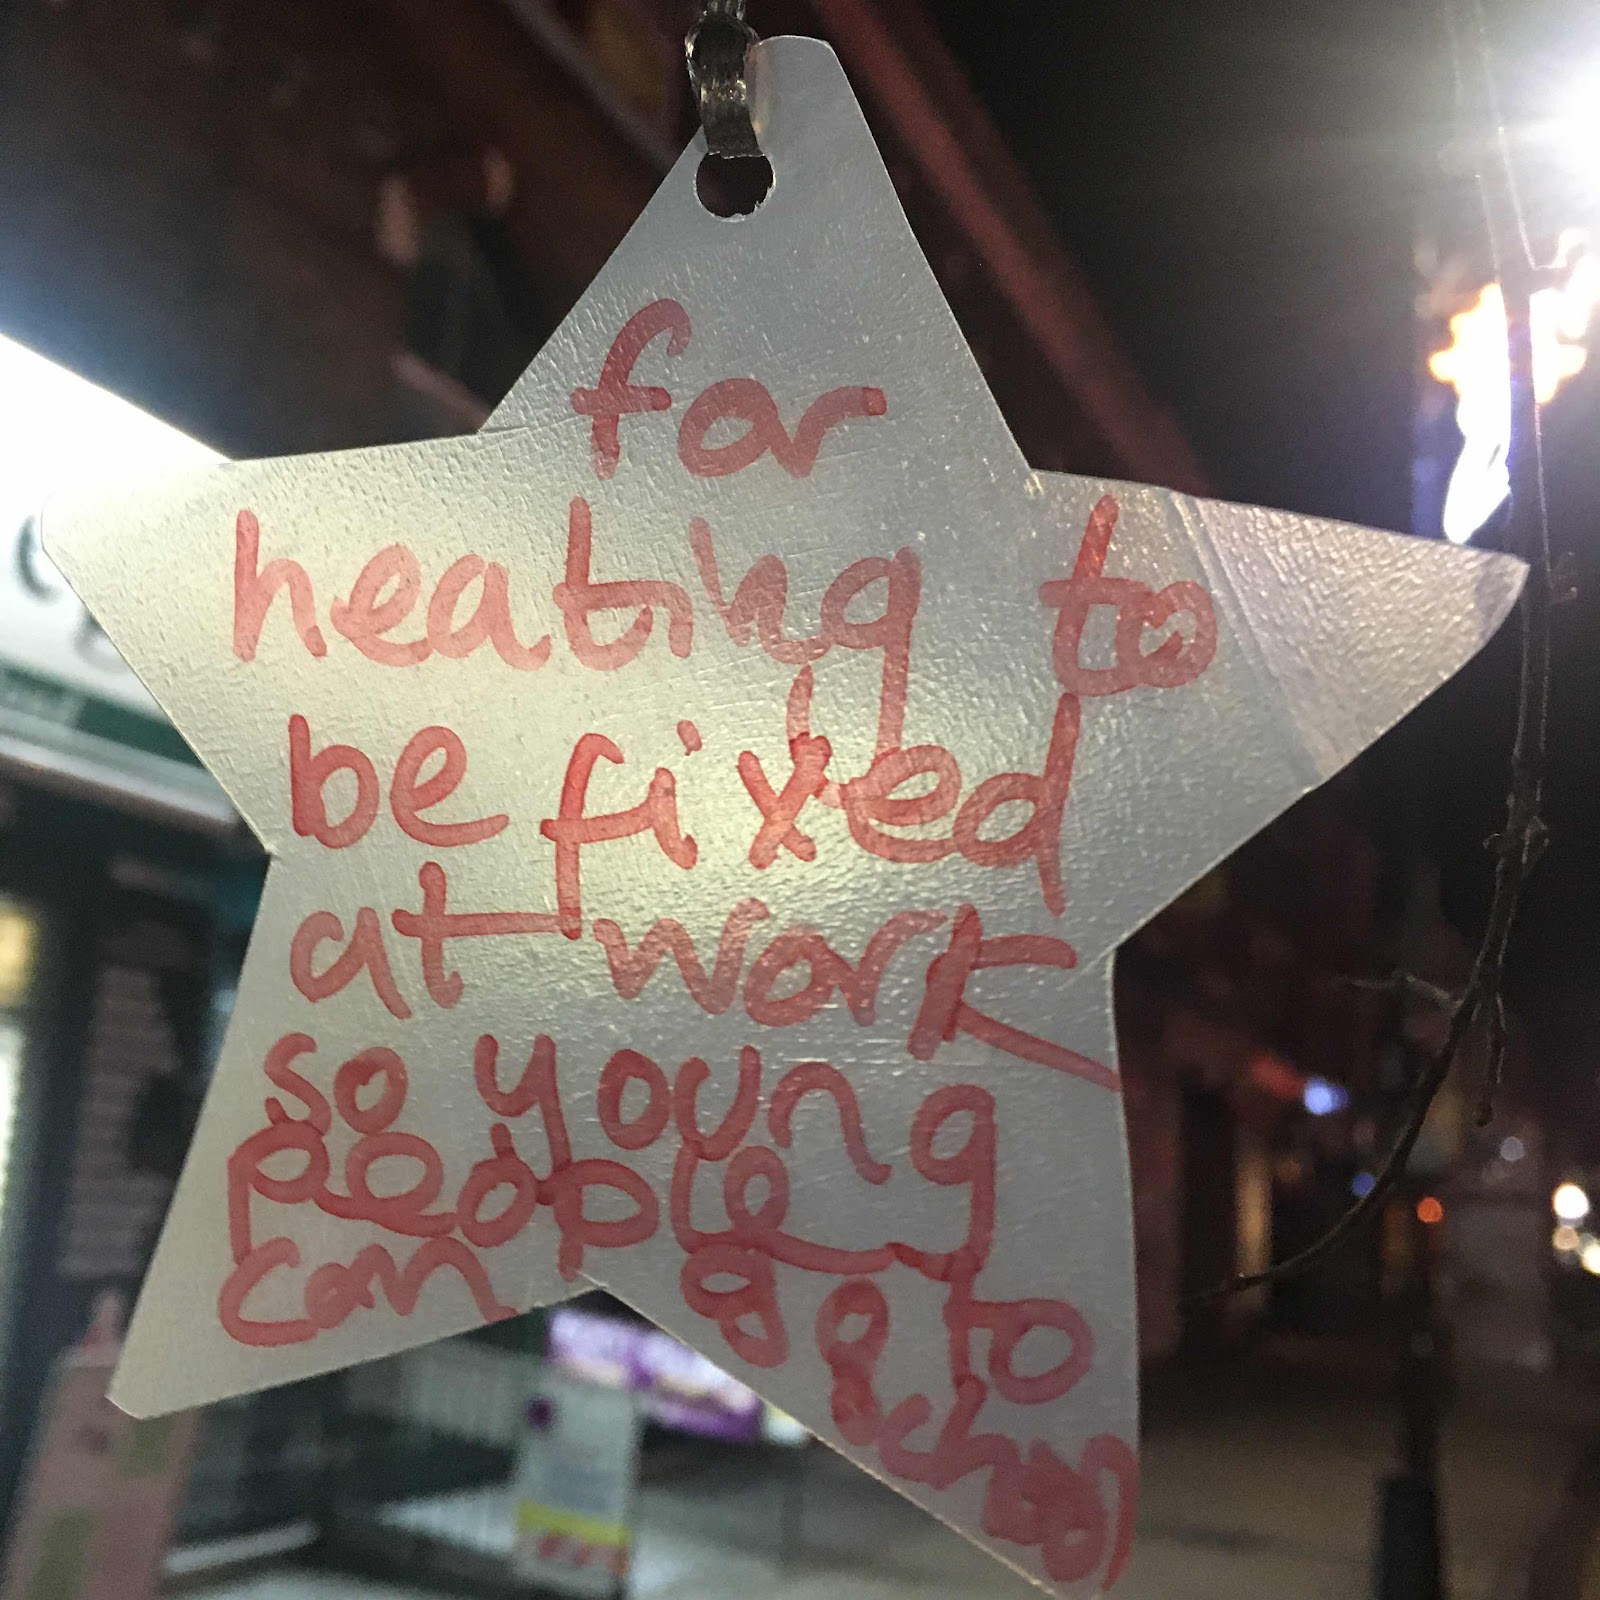 for
heating to
be fixed
at work
so young
people
can go to
school